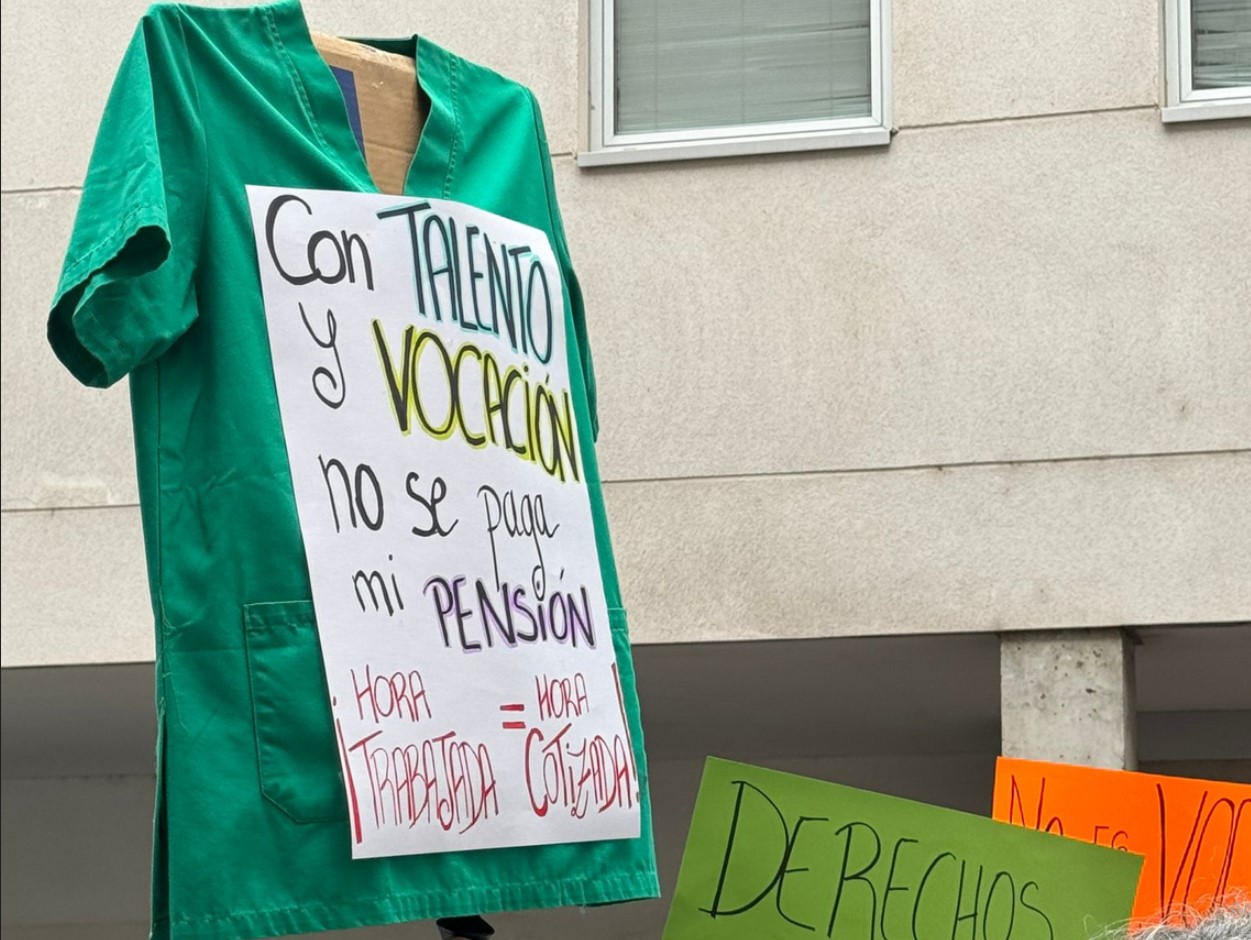 Con TALENTO
y VOCACIÓN
no se paga
mi PENSIÓN
¡HORA TRABAJADA = HORA COTIZADA!
DERECHOS
No es